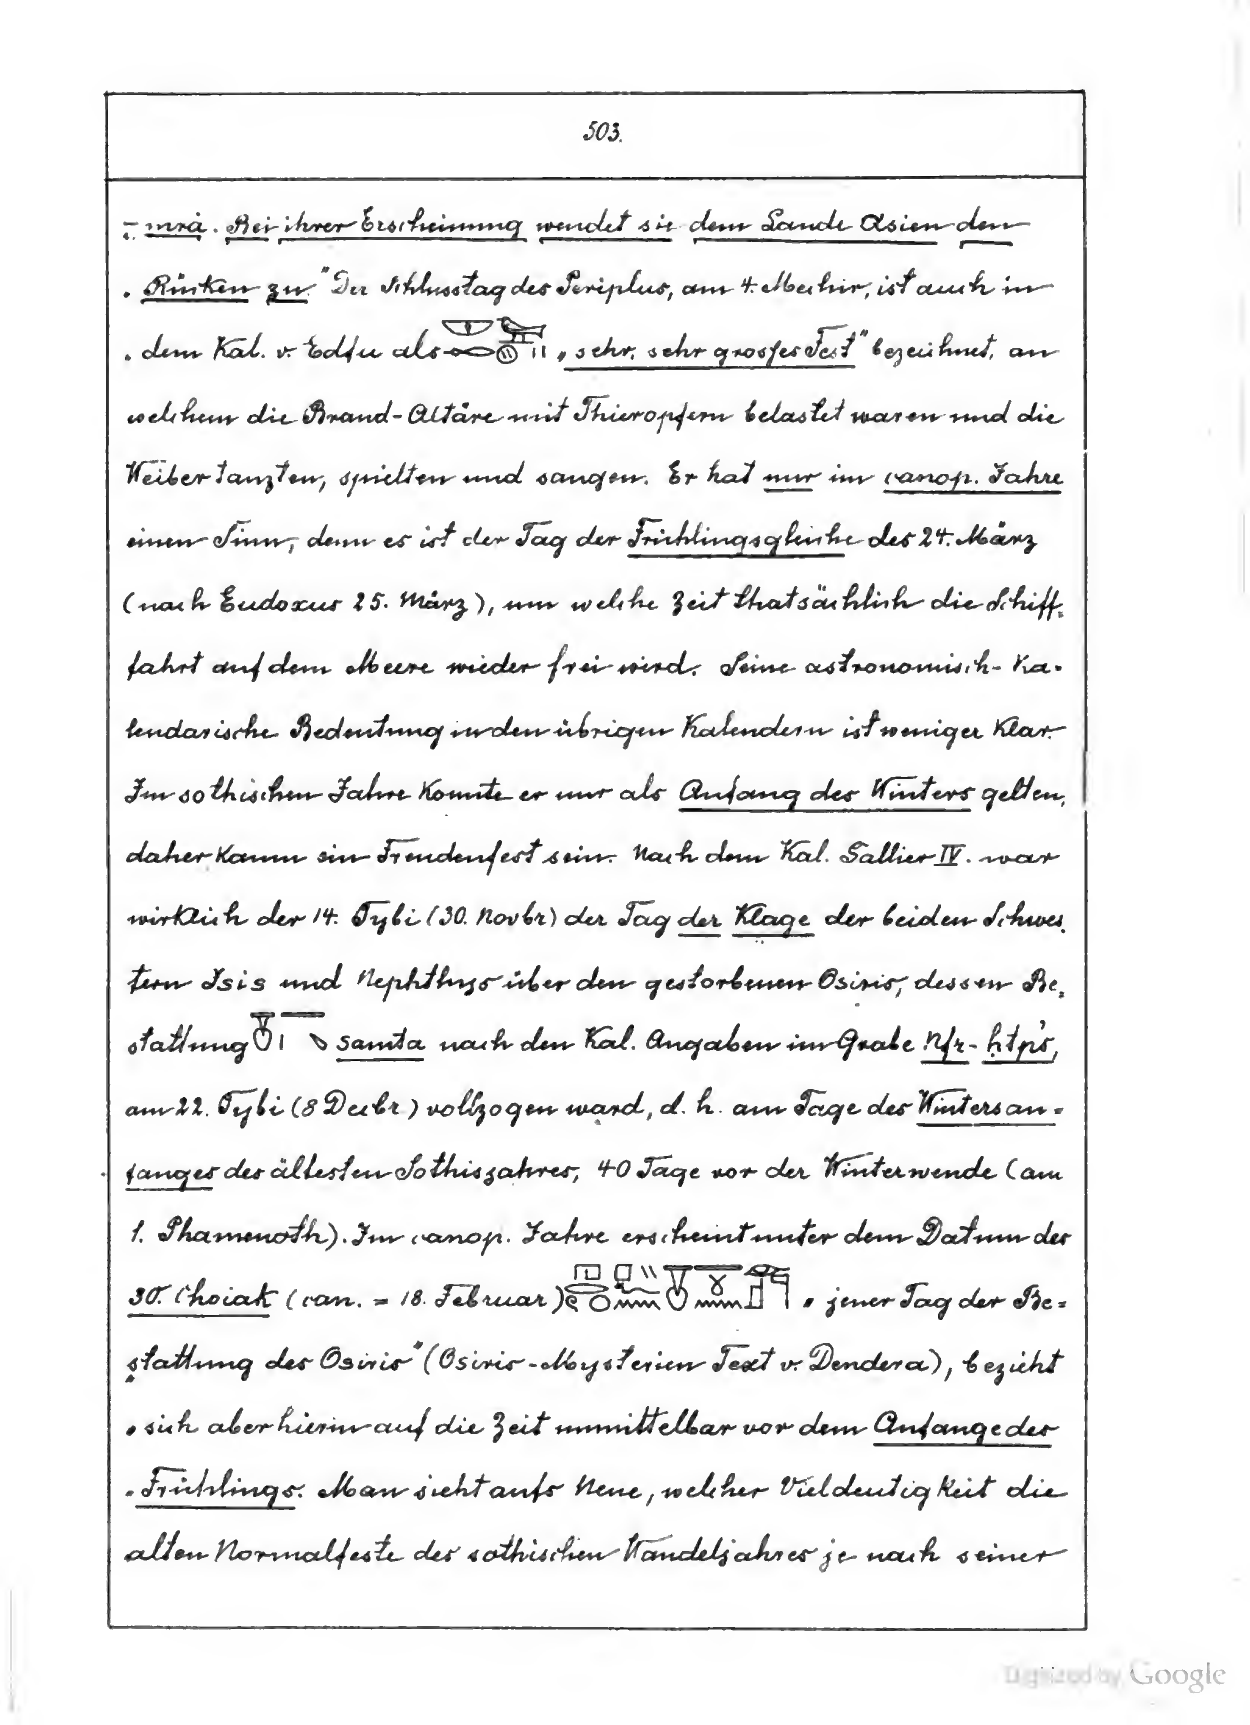 503.
mrȧ. Bei ihrer Erscheinung wendet sie dem Lande Asien den
Rücken zu." Der Schlusstag des Periplus, am 4. Mechir, ist auch in
dem Kal. v. Edfu als „sehr, sehr grosses Fest" bezeichnet, an
welchem die Brand-Altäre mit Thieropfern belastet waren und die
Weiber tanzten, spielten und sangen. Er hat nur im canop. Jahre
einen Sinn, denn es ist der Tag der Frühlingsgleiche des 24. März
(nach Eudoxus 25. März), um welche Zeit thatsächlich die Schiff-
fahrt auf dem Meere wieder frei wird. Seine astronomisch-ka-
lendarische Bedeutung in den übrigen Kalendern ist weniger klar.
Im sothischen Jahre konnte er nur als Anfang des Winters gelten,
daher kaum ein Freudenfest sein. Nach dem Kal. Sallier IV. war
wirklich der 14. Tybi (30. Novbr) der Tag der Klage der beiden Schwes-
tern Isis und Nephthys über den gestorbenen Osiris, dessen Be-
stattung samta nach den Kal. Angaben im Grabe Nfr-ḥtp's,
am 22. Tybi (8 Decbr) vollzogen ward, d. h. am Tage des Wintersan=
fanges des ältesten Sothisjahres, 40 Tage vor der Winterwende (am
1. Phamenoth). Im canop. Jahre erscheint unter dem Datum des
30. Choiak (can. = 18. Februar) „jener Tag der Be=
stattung des Osiris" (Osiris-Mysterien Text v. Dendera), bezieht
sich aber hierin auf die Zeit unmittelbar vor dem Anfange des
Frühlings. Man sieht aufs Neue, welcher Vieldeutigkeit die
alten Normalfeste des sothischen Wandeljahres je nach seiner
Digitized by Google